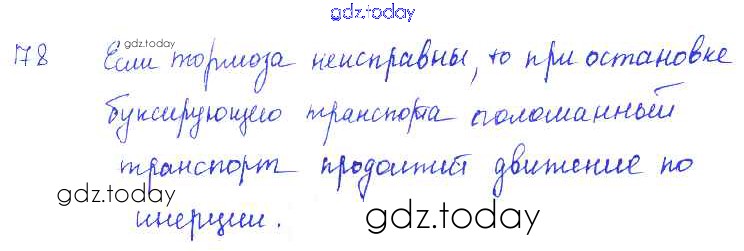 gdz.today
178 Если тормоза неисправны, то при остановке
gdz.today
буксирующего транспорта поломанный
транспорт продолжит движение по
gdz.today
инерции.
gdz.today